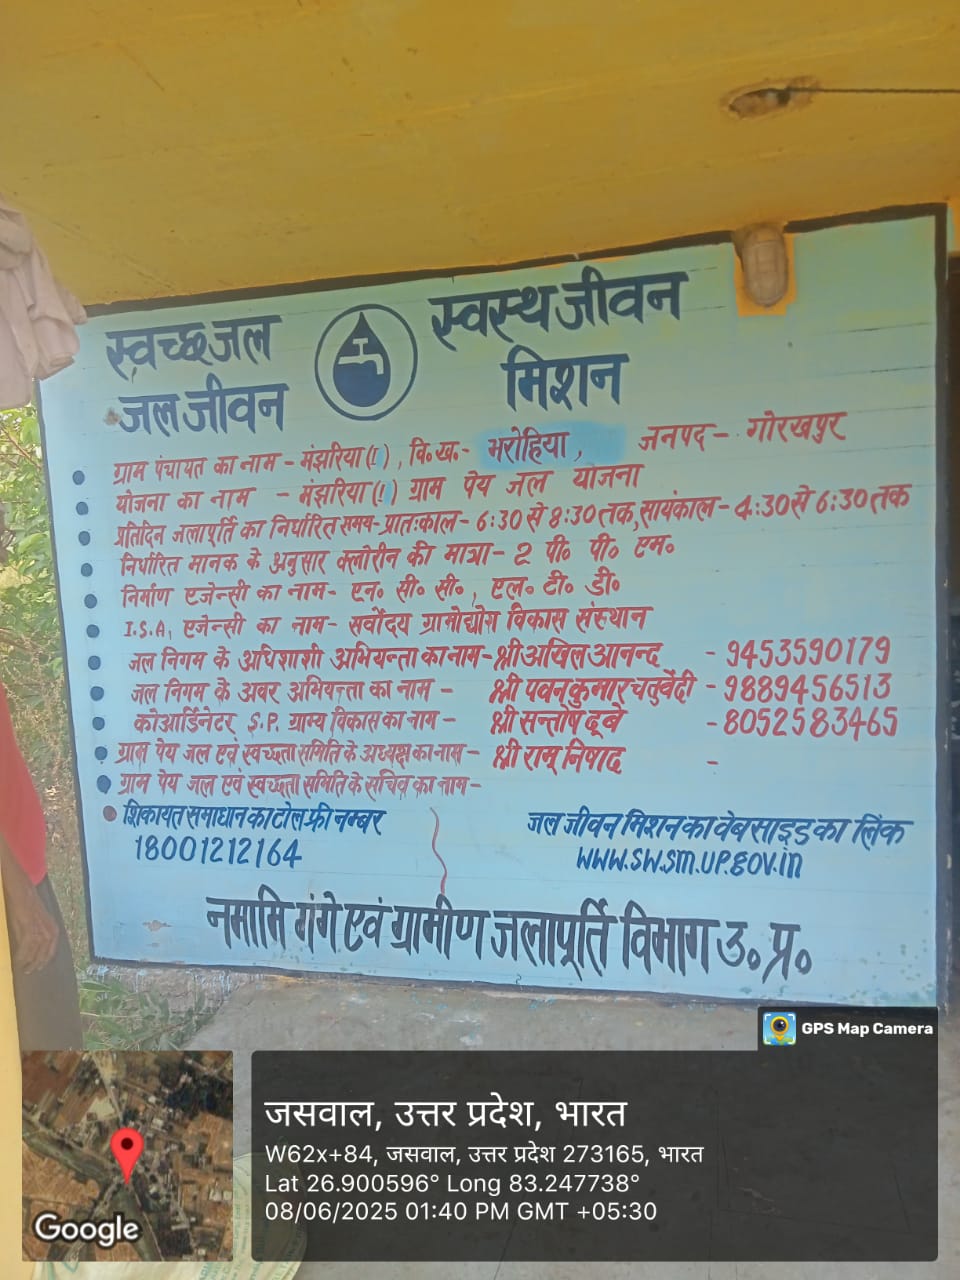 स्वच्छ जल स्वस्थ जीवन
जल जीवन मिशन
ग्राम पंचायत का नाम - मंझरिया (I), वि॰ख॰- भरोहिया, जनपद - गोरखपुर
योजना का नाम - मंझरिया (I) ग्राम पेय जल योजना
प्रतिदिन जलापूर्ति का निर्धारित समय-प्रातःकाल- 6:30 से 8:30 तक, सायंकाल- 4:30 से 6:30 तक
निर्धारित मानक के अनुसार क्लोरीन की मात्रा- 2 पी॰ पी॰ एम॰
निर्माण एजेन्सी का नाम- एन॰ सी॰ सी॰, एल॰ टी॰ डी॰
I.S.A. एजेन्सी का नाम- सर्वोदय ग्रामोद्योग विकास संस्थान
जल निगम के अधिशाशी अभियन्ता का नाम- श्री अखिल आनन्द - 9453590179
जल निगम के अवर अभियन्ता का नाम - श्री पवन कुमार चतुर्वेदी - 9889456513
कोआर्डिनेटर S.P. ग्राम्य विकास का नाम - श्री सन्तोष दूबे - 8052583465
ग्राम पेय जल एवं स्वच्छता समिति के अध्यक्ष का नाम - श्री राम निषाद -
ग्राम पेय जल एवं स्वच्छता समिति के सचिव का नाम-
शिकायत समाधान का टोल फ्री नम्बर
18001212164
जल जीवन मिशन का वेबसाइड का लिंक
WWW.SWSM.UP.GOV.in
नमामि गंगे एवं ग्रामीण जलापूर्ति विभाग उ॰ प्र॰
GPS Map Camera
जसवाल, उत्तर प्रदेश, भारत
W62x+84, जसवाल, उत्तर प्रदेश 273165, भारत
Lat 26.900596° Long 83.247738°
08/06/2025 01:40 PM GMT +05:30
Google